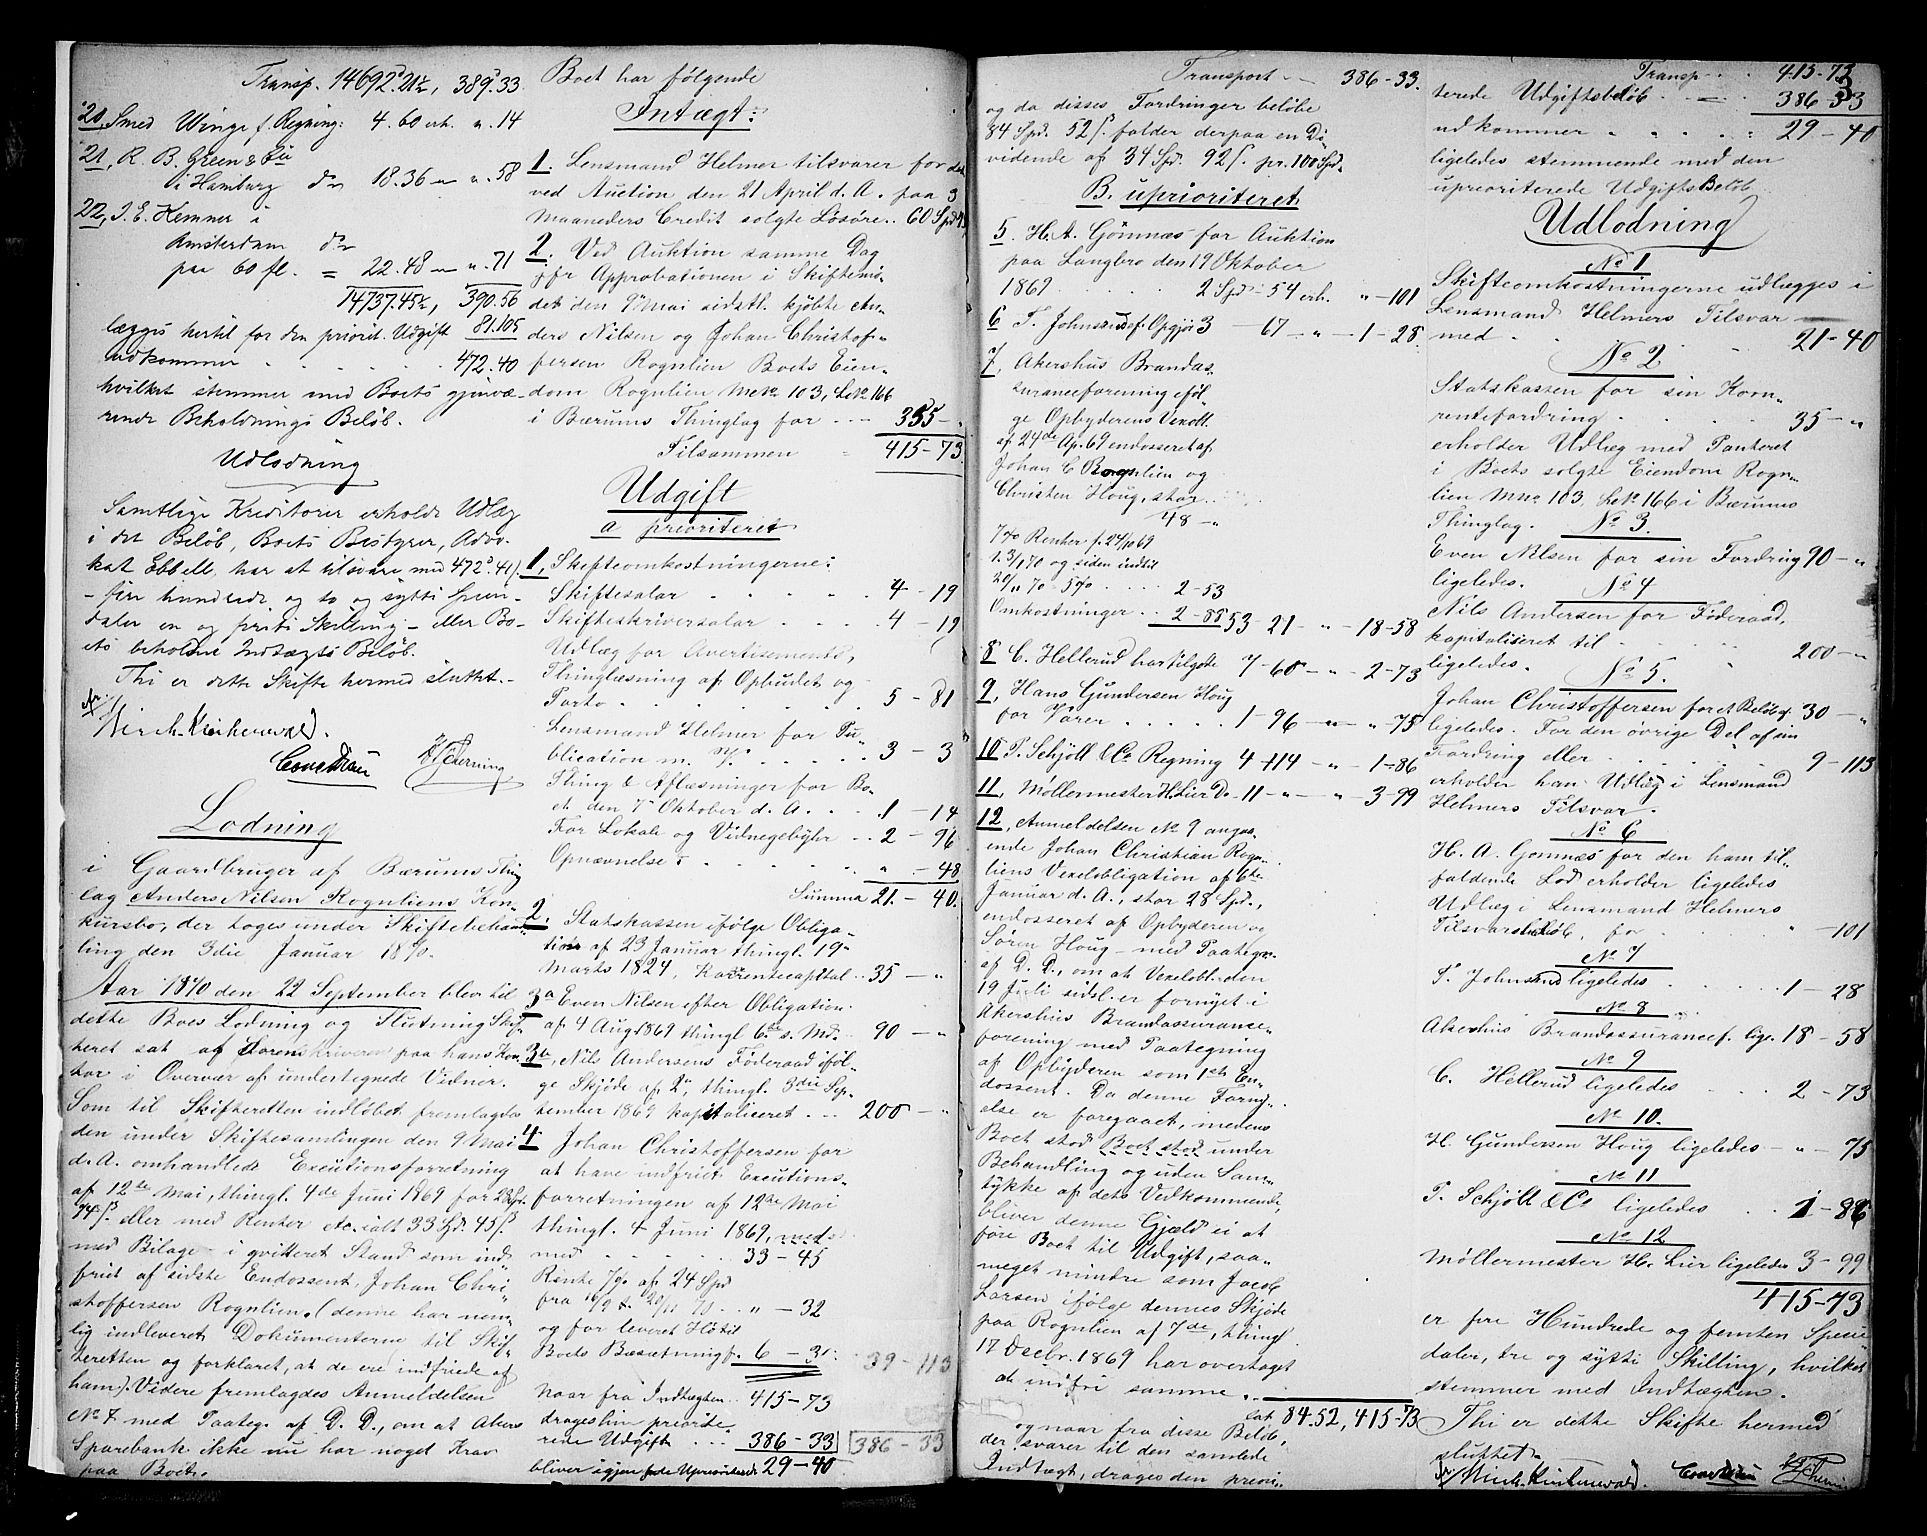 Transp. 14692. 21½, 389. 33
20, Smed Winge f. Regning: 4. 60 erh. „ 14
21, R. B. Green & Co
i Hamburg do 18. 36 „ „ 58
22, J. E. Kemner i
Amsterdam do
paa 60 fl. = 22. 48 „ „ 71
14737. 45½, 390. 56
lægges hertil for den priorit. Udgift 81. 105
udkommer . . . . . 472. 40
hvilket stemmer med Boets gjenvæ-
rende Beholdnings Beløb.
Udlodning
Samtlige Kreditorer erholde Udlæg
i det Beløb, Boets Bestyrer, Advo-
kat Ebbell, har at tilsvare med 472. 41
- fire hundrede og to og sytti Spesi-
daler en og firti Skilling - eller Bo-
ets beholdne Indtægts Beløb.
Thi er dette Skifte hermed sluttet. -
Lodning
i Gaardbruger af Bærums Thing-
lag Anders Nilsen Rognliens Kon-
kursbo, der toges under Skiftebehand-
ling den 3die Januar 1870.
Aar 1870 den 22 September blev til
dette Boes Lodning og Slutning Skif-
teret sat af Sorenskriveren paa hans Kon-
tor i Overvær af undertegnede Vidner.
Som til Skifteretten indløbet fremlagdes
den under Skiftesamlingen den 9 Mai
d. A. omhandlede Executionsforretning
af 12te Mai, thingl. 4de Juni 1869 for 28 Spd.
94 ß. eller med Renter etc. ialt 33 Spd. 45 ß
med Bilage - i qvitteret Stand som ind-
friet af sidste Endossent, Johan Chri-
stoffersen Rognlien. (denne har nem-
lig indleveret Dokumenterne til Skif-
teretten og forklaret, at de ere indfriede af
ham). Videre fremlagdes Anmeldelsen
No 7 med Paateg. af D. D., om at Akers
Sparebank ikke nu har noget Krav
paa Boet.
Boet har følgende
Intægt:
1. Lensmand Helmer tilsvarer for det
ved Auction den 21 April d. A. paa 3
Maaneders Credit solgte Løsøre . . 60 Spd
2. Ved Auktion samme Dag
jfr Approbationen i Skiftemø-
det den 9 Mai sidstl. kjøbte An-
ders Nilsen og Johan Christof-
fersen Rognlien Boets Eien-
dom Rognlien Mtr No 103, Lb No 166
i Bærums Thinglag for . . . 355 - „
Tilsammen „ 415 - 73
Udgift
a prioriteret
1, Skifteomkostningerne:
Skiftesalar . . . . . 4 - 19
Skifteskriversalar . . . . 4 - 19
Udlæg for Avertisements,
Thinglæsning af Opbudet og
Porto . . . . . . . 5 - 81
Lensmand Helmer for Pu-
blication m. V. . . . . . 3 - 3
Thing & Aflæsninger for Bo-
et den 7 Oktober d. A. . . . 1 - 14
For Lokale og Vidnegebyhr . . 2 - 96
Opnævnelse . . . . . „ - 48
Summa 21. - 40.
2. Statskassen ifølge Obliga-
tion af 23 Januar thingl. 19
Marts 1824, Kornrentecapital . . 35 - „
3a Even Nilsen efter Obligation
af 4 Aug 1869 thingl 6te s. Md. . 90 - „
3b, Nils Andersens Føderaad iføl-
ge Skjøde af 2n, thingl. 3die Sep-
tember 1869 kapitaliseret . . . 200 - „
4 Johan Christoffersen for
at have indfriet Executions-
forretningen af 12te Mai
thingl. 4 Juni 1869, med
med . . . . . . 33 - 45
Rente 7% af 24 Spd
fra 10/9 t. 20/11 70 . . „ - 32
og for leveret Hø til
Boets Besætning f. 6 - 30 39 - 113
naar fra Indtægten . . 415 - 73
drages hin priorite-
rede Udgift . . . 386 - 33 386 - 33
bliver igjen for de Uprioriterede 29 - 40
Transport . . . 386 - 33.
og da disses Fordringer beløbe
84 Spd. 52 ß. falder derpaa en Di-
vidende af 34 Spd. 92 ß. pr. 100 Spd.
B. uprioriteret
5. H. A. Gomnæs for Auktion
paa Langbro den 19 Oktober
1869 . . . . . 2 Spd - 54 erh. „ - 101
6 T. Johnsrud ef. Opgjør 3 - 67 - „ - 1 - 28
7, Akershus Brandas-
suranceforening iføl-
ge Opbyderens Vexelt.
af 24de Ap. 69 endosseret af
Johan C Rognlien og
Christen Houg, stor . .
48 - „
7% Renter f. 24/10 69
t. 3/1 70 og siden indtil
20/11 70 - 5% . . . 2 - 53
Omkostninger . . 2 - 88 53 - 21 - „ - 18 - 58
8 C. Hellerud har tilgode 7 - 60 - „ - 2 - 73
9, Hans Gundersen Houg
for Varer . . . . . 1 - 96 - „ - „ 75
10 P. Schjøll & Co Regning 4 - 114 - „ - 1 - 86
11, Møllermester H. Lier Do - 11 - „ - „ 3 - 99
12, Anmeldelsen No 9 angaa-
ende Johan Christian Rogn-
liens Vexelobligation af 6te
Januar d. A., stor 28 Spd.,
endosseret af Opbyderen og
Søren Houg - med Paategn.
af D. D., om at Vexelobl. den
19 Juli sidsl. er fornyet i
Akershus Brandassurance-
forening med Paategning
af Opbyderen som 1ste En-
dossent. Da denne Forny-
else er foregaaet, medens
Boet stod Boet stod under
Behandling og uden Sam-
tykke af dets Vedkommende,
bliver denne Gjæld ei at
føre Boet til Udgift, saa-
meget mindre som Jacob
Larsen ifølge dennes Skjøde
paa Rognlien af 7de, thingl
17 Decbr. 1869 har overtaget
at indfri samme . .
Lat. 84. 52, 415 - 73
og naar fra disse Beløb,
der svarer til den samlede
Indtægt, drages den priori-
Transp . . . 415 - 73
3
terede Udgiftsbeløb . . 386 33
udkommer „ „ „ „ „ 29 - 40
ligeledes stemmende med den
uprioriterede Udgifts Beløb.
Udlodning
No 1
Skifteomkostningerne udlægges i
Lensmand Helmers Tilsvar
med . . . . . 21 - 40
No 2.
Statskassen for sin Korn-
rentefordring . . . . 35 - „
erholder Udlæg med Panteret
i Boets solgte Eiendom Rogn-
lien M No 103, Lb No 166 i Bærums
Thinglag. No 3.
Even Nilsen for sin Fordring 90 - „
ligeledes. No 4
Nils Andersen for Føderaad,
kapitaliseret til . . . . 200 - „
ligeledes. No 5.
Johan Christoffersen for et Beløb af 30 - „
ligeledes. For den øvrige Del af sin
Fordring eller . . . . . 9 - 113
erholder han Udlæg i Lensmand
Helmers Tilsvar.
No 6
H. A. Gomnæs for den ham til-
faldende Lod erholder ligeledes
Udlæg i Lensmand Helmers
Tilsvarsbeløb, for . . . . „ - 101
No 7
T. Johnsrud ligeledes . . . . 1 - 28
No 8
Akershus Brandassurancef. lige. 18 - 58
No 9
C. Hellerud ligeledes . . . 2 - 73
No 10.
H. Gundersen Houg ligeledes - „ - 75
No 11
P. Schjøll & Co ligeledes . . 1 - 86
No 12
Møllermester H. Lier ligeledes 3 - 99
415 - 73
er fire Hundrede og femten Specie-
daler, tre og sytti Skilling, hvilket
stemmer med Indtægten.
Thi er dette Skifte hermed
sluttet.